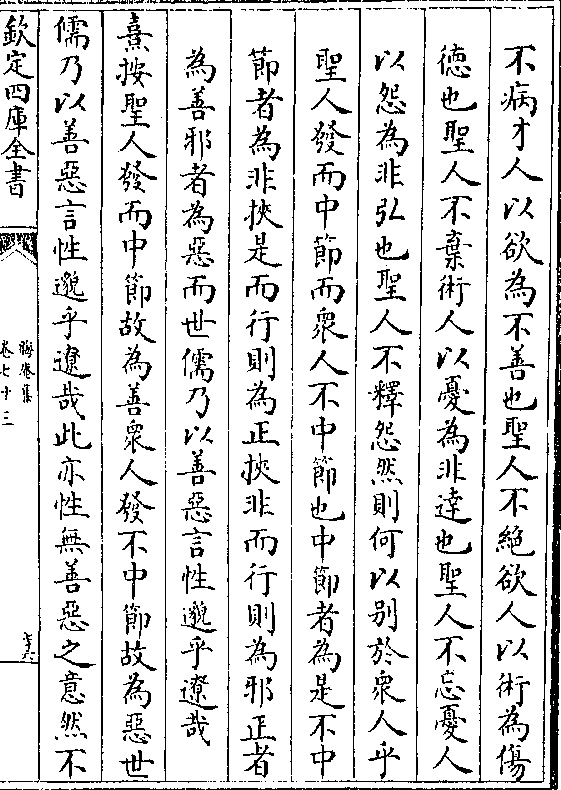 不病才人以欲為不善也聖人不絕欲人以術為傷
徳也聖人不棄術人以憂為非達也聖人不忘憂人
以怨為非弘也聖人不釋怨然則何以别於衆人乎
聖人發而中節而衆人不中節也中節者為是不中
節者為非挾是而行則為正挾非而行則為邪正者
為善邪者為惡而世儒乃以善惡言性邈乎遼哉
熹按聖人發而中節故為善衆人發不中節故為惡世
儒乃以善惡言性邈乎遼哉此亦性無善惡之意然不
欽定四庫全書
晦庵集
卷七十三